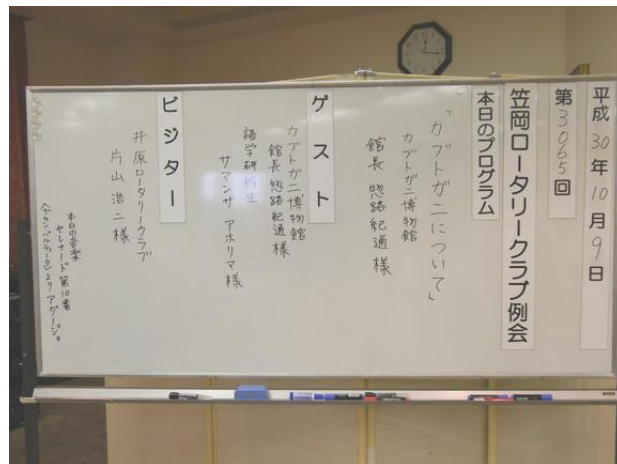 平成30年10月9日
第3065回
笠岡ロータリークラブ例会
本日のプログラム
「カブトガニについて」
カブトガニ博物館
館長 惣路紀通様
ゲスト
カブトガニ博物館
館長 惣路紀通様
語学研修生
サマンサ アホリマ様
ビジター
井原ロータリークラブ
片山浩二様
本日の音楽
セレナード第10番
アダージョ